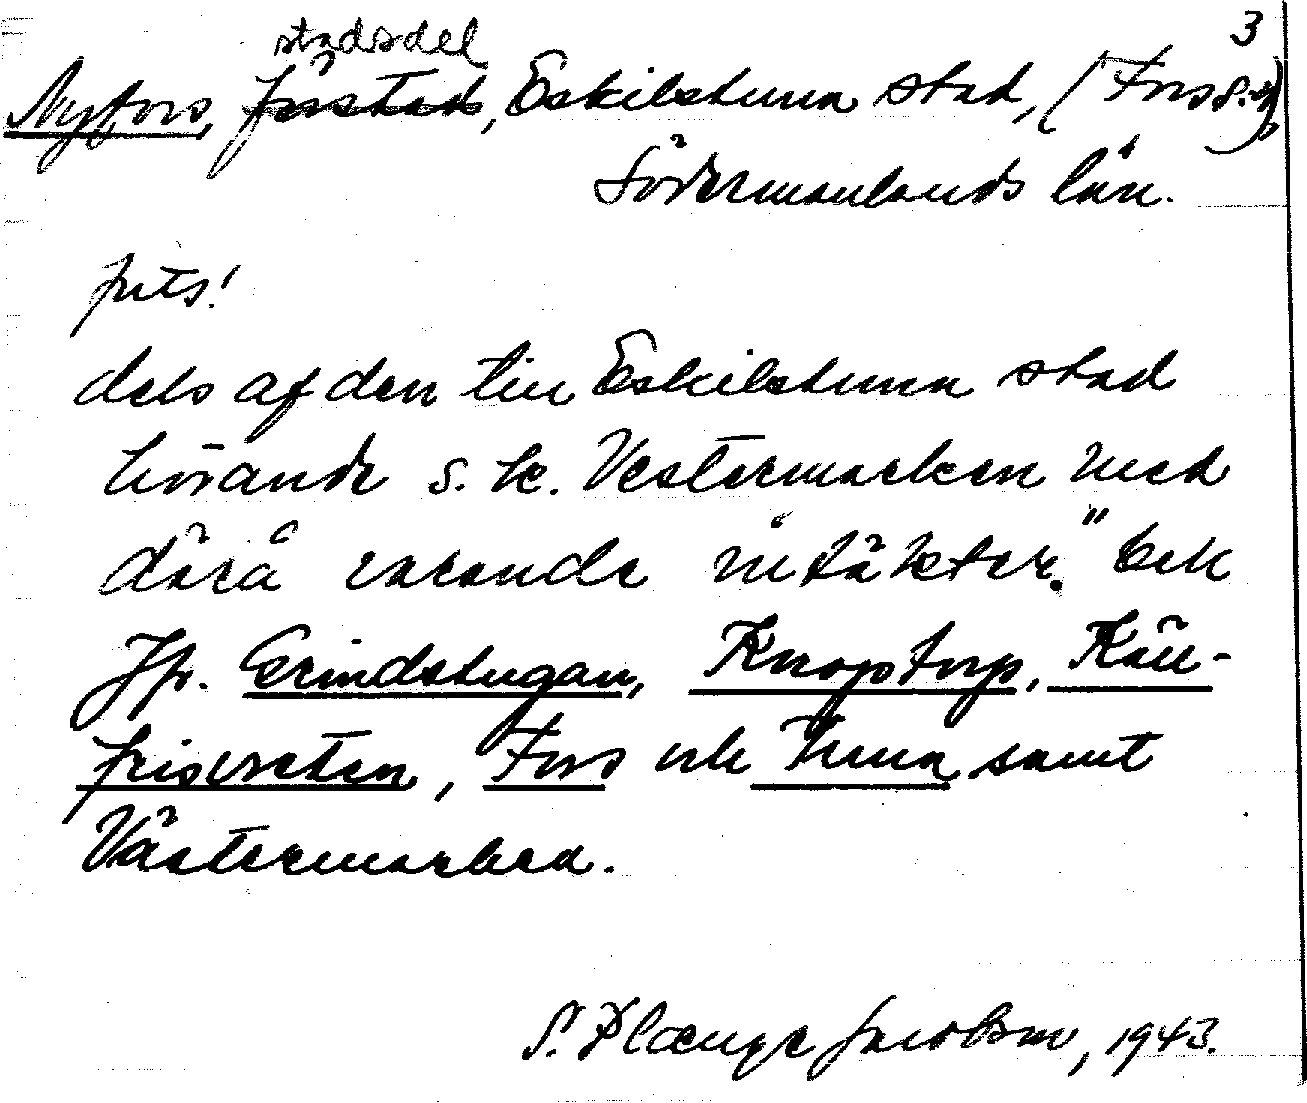 3
stadsdel
Nyfors, förstad, Eskilstuna stad, (Fors s:n)
Södermanlands län.
forts!
dels af den till Eskilstuna stad
hörande s. k. Vestermarken med
därå varande intäkter." bek
Jfr. Grindstugan, Knoptorp, Käll-
fris, Fors och Tuna samt
Västermarken.
S. Plænge Jacobson, 1943.